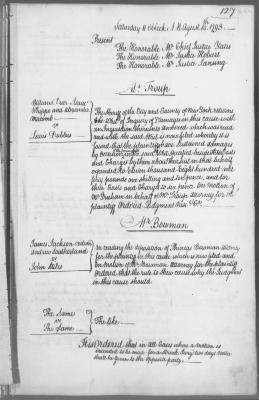 127
Saturday 11 o'Clock A.M. August 10th 1793.
Present
The Honorable Mr Chief Justice Yates
The Honorable Mr Justice Hobart
The Honorable Mr Justice Lansing
Mr Troup
William
and Alexander
Macomb
vs
Lewis Dubbois
The Sheriff of the City and County of New York returns
the Writ of Inquiry of Damages in this cause with
an Inquisition thereunto annexed which was read
and filed the said Writ is
found that the plaintiffs have sustained damages
by Occasion in the said Writ specified besides their Costs
and Charges by them about their suit in that behalf
expended to Eleven thousand Eight hundred and
pounds one shilling and six pence, and for
their Costs and Charges to six pence On motion of
Mr on behalf of Mr Troup attorney for the
plaintiffs Ordered Judgment Nisi &c.
Mr Bowman
James Jackson
vs
John Stiles
On reading the affidavit of Phineas Bowman Attorney
for the plaintiff in this cause which is now filed and
on motion of Mr Bowman Attorney for the plaintiff
Ordered, that the rule to shew cause why the Judgment
in this cause should
The Same
vs
The Same
The like
It is Ordered that in all Cases where a motion is
intended to be made for a Struck Jury two days notice
shall be given to the Opposite party.